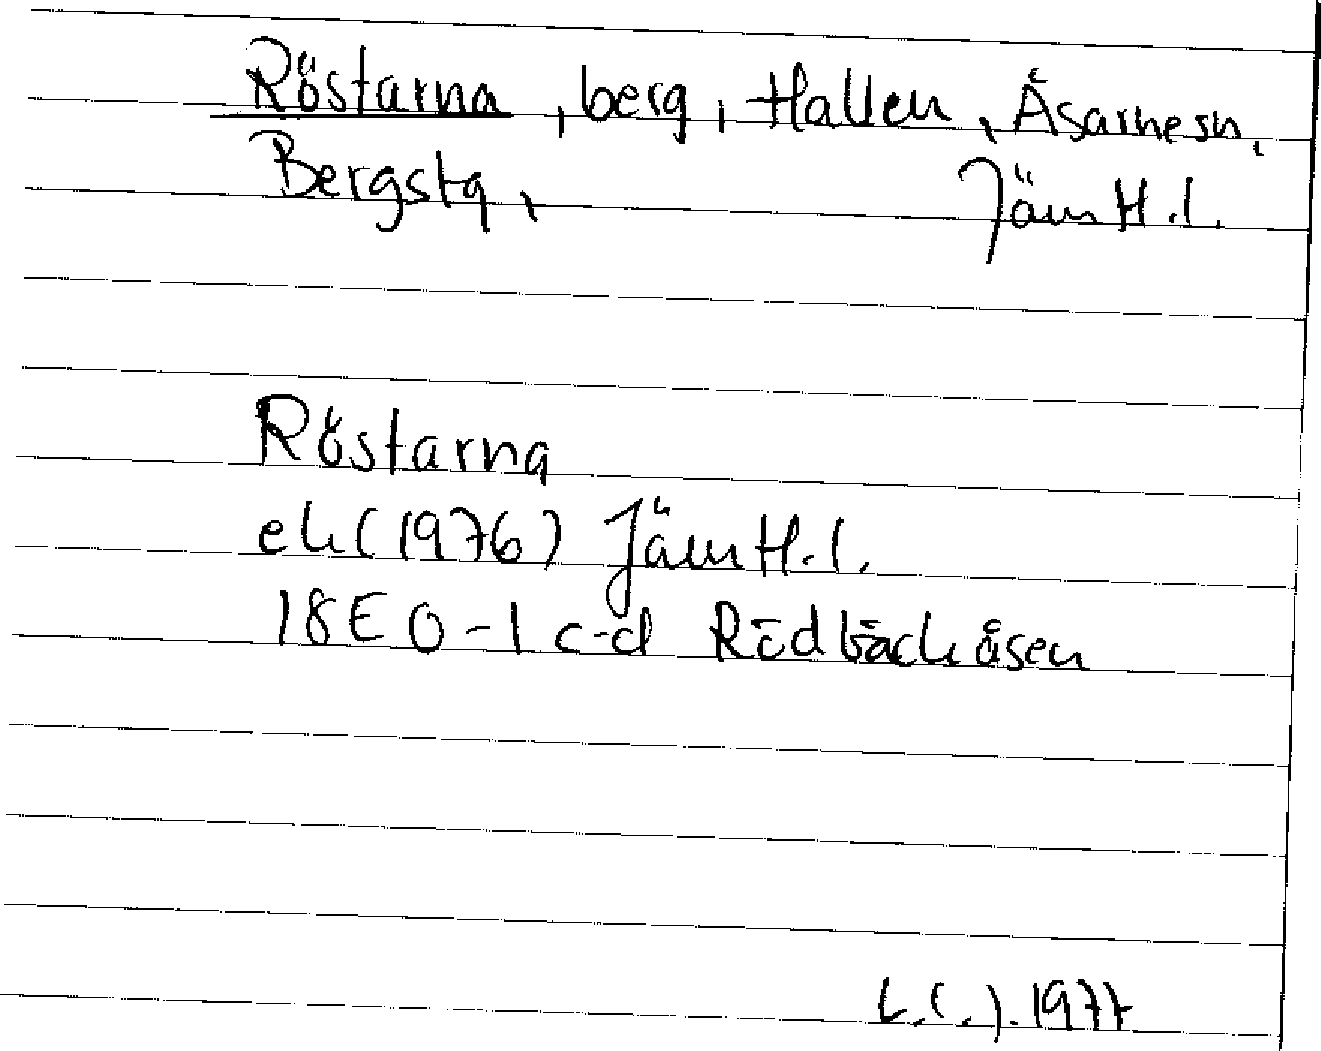 Röstarna, berg, Hallen, Åsarne sn,
Bergs tg, Jämtl. l.
Röstarna
ek (1976) Jämtl. l.
18E 0-1 c-d Rödbäckåsen
1977